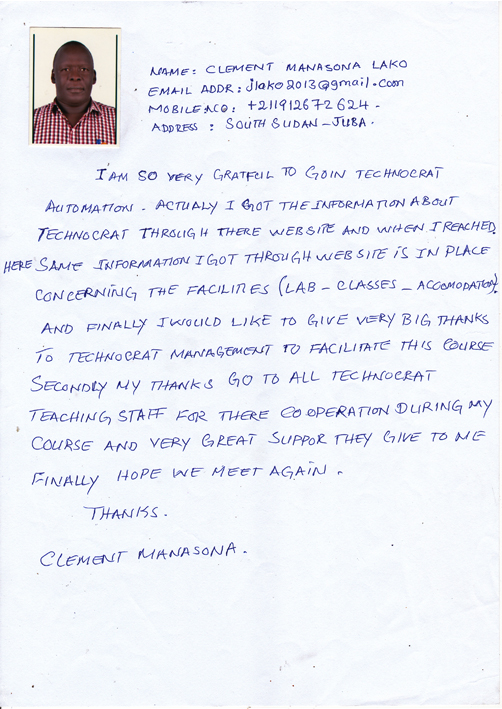 NAME: CLEMENT MANASONA LAKO
EMAIL ADDR: jlako2013@gmail.com
MOBILE NO: +211912672624.
ADDRESS: SOUTH SUDAN - JUBA.
I AM SO VERY GRATFUL TO GOIN TECHNOCRAT
AUTOMATION. ACTUALY I GOT THE INFORMATION ABOUT
TECHNOCRAT THROUGH THERE WEBSITE AND WHEN I REACHED
HERE SAME INFORMATION I GOT THROUGH WEBSITE IS IN PLACE
CONCERNING THE FACILITIES (LAB - CLASSES - ACCOMODATION).
AND FINALLY I WOULD LIKE TO GIVE VERY BIG THANKS
TO TECHNOCRAT MANAGEMENT TO FACILITATE THIS COURSE
SECONDLY MY THANKS GO TO ALL TECHNOCRAT
TEACHING STAFF FOR THERE COOPERATION DURING MY
COURSE AND VERY GREAT SUPPOR THEY GIVE TO ME
FINALLY HOPE WE MEET AGAIN.
THANKS.
CLEMENT MANASONA.